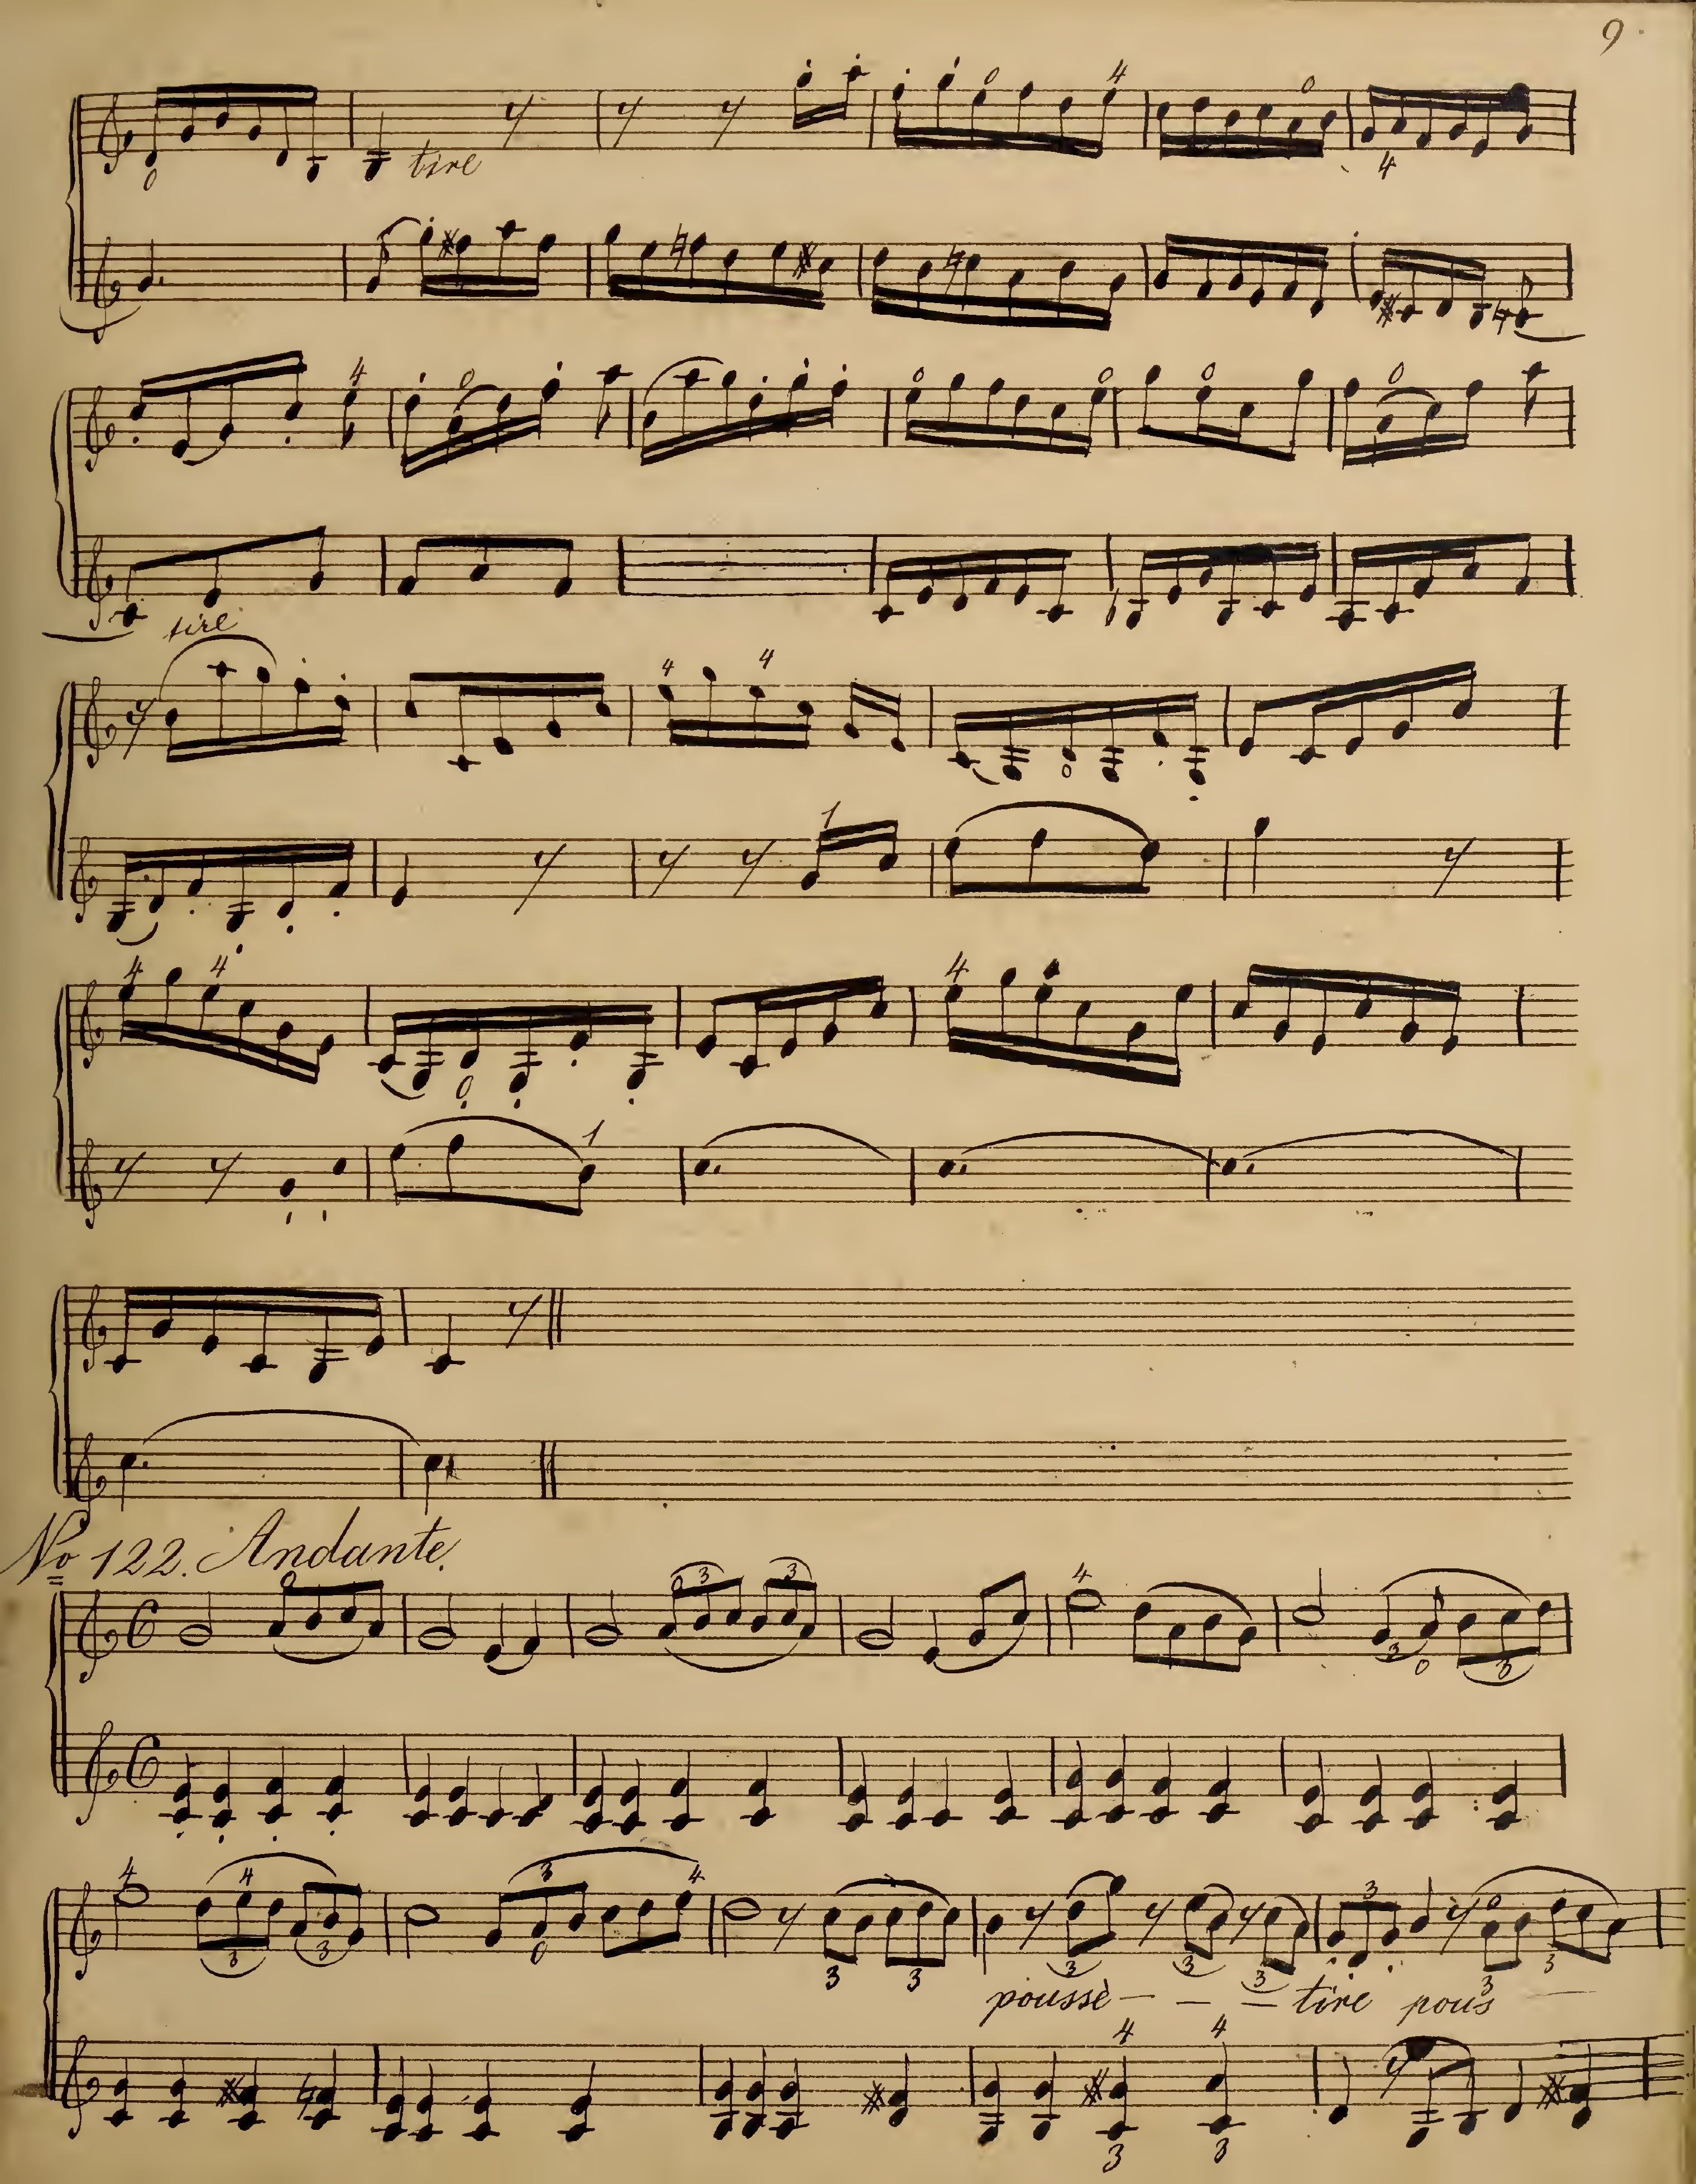 9.
tire
tire
No 122. Andante.
poussè - - - tire pous